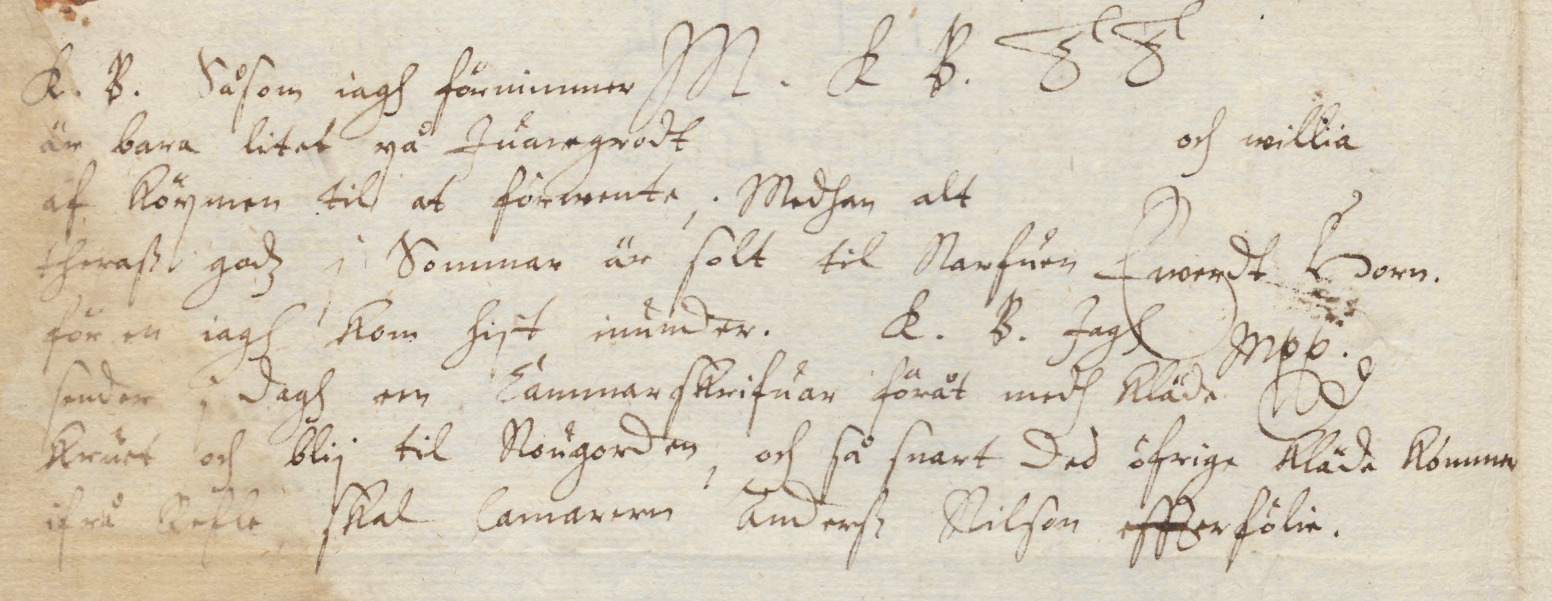 K. B. Såsom iagh förnimmer M. K B.
är bara litet på Juanegrodt och willia
af Köpmen til at förwente, Medhan alt
theraß godz i Sommar är solt til Narfuen Ewerdt Horn.
för en iagh kom hijt inunder. K. B. Jagh Mpp.
sender i dagh en Cammarskrifuar föråt medh kläde
kruet och blij til Nougorden, och så snart ded öfrige kläde kommer
ifrå Refle, skal Camareren Anderß Nilson efferfölie.